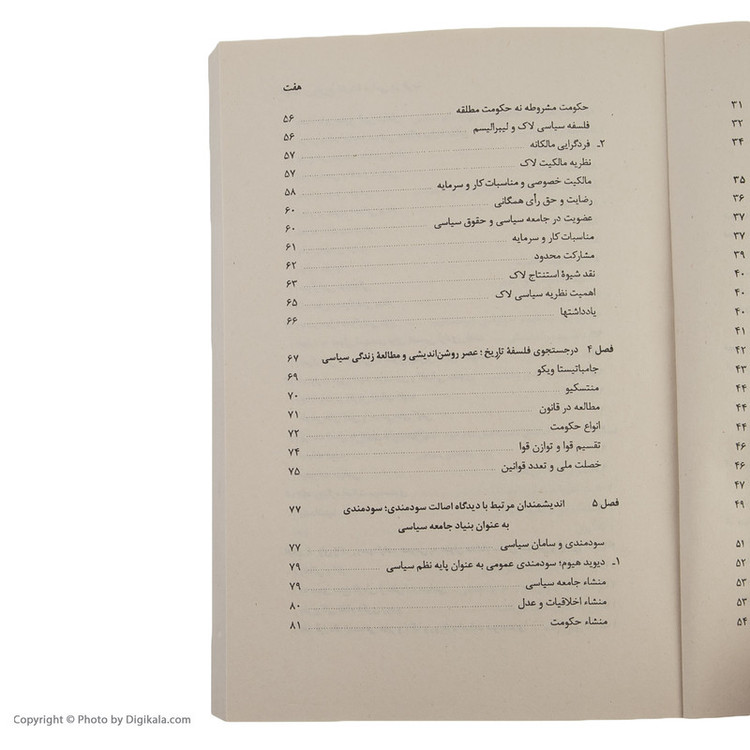 هفت
حکومت مشروطه نه حکومت مطلقه ۵۶
فلسفه سیاسی لاک و لیبرالیسم ۵۶
۲ـ فردگرایی مالکانه ۵۷
نظریه مالکیت لاک ۵۷
مالکیت خصوصی و مناسبات کار و سرمایه ۵۸
رضایت و حق رأی همگانی ۶۰
عضویت در جامعه سیاسی و حقوق سیاسی ۶۰
مناسبات کار و سرمایه ۶۱
مشارکت محدود ۶۲
نقد شیوۀ استنتاج لاک ۶۳
اهمیت نظریه سیاسی لاک ۶۵
یادداشتها ۶۶
فصل ۴ درجستجوی فلسفۀ تاریخ؛ عصر روشن‌اندیشی و مطالعۀ زندگی سیاسی ۶۷
جامباتیستا ویکو ۶۹
منتسکیو ۷۰
مطالعه در قانون ۷۱
انواع حکومت ۷۲
تقسیم قوا و توازن قوا ۷۴
خصلت ملی و تعدد قوانین ۷۵
فصل ۵ اندیشمندان مرتبط با دیدگاه اصالت سودمندی؛ سودمندی ۷۷
به عنوان بنیاد جامعه سیاسی
سودمندی و سامان سیاسی ۷۷
۱ـ دیوید هیوم؛ سودمندی عمومی به عنوان پایه نظم سیاسی ۷۹
منشاء جامعه سیاسی ۷۹
منشاء اخلاقیات و عدل ۸۰
منشاء حکومت ۸۱
۳۱
۳۲
۳۴
۳۵
۳۶
۳۷
۳۷
۳۹
۴۰
۴۰
۴۰
۴۱
۴۲
۴۳
۴۴
۴۴
۴۴
۴۶
۴۶
۴۷
۴۹
۵۱
۵۲
۵۳
۵۳
۵۴
Copyright © Photo by Digikala.com